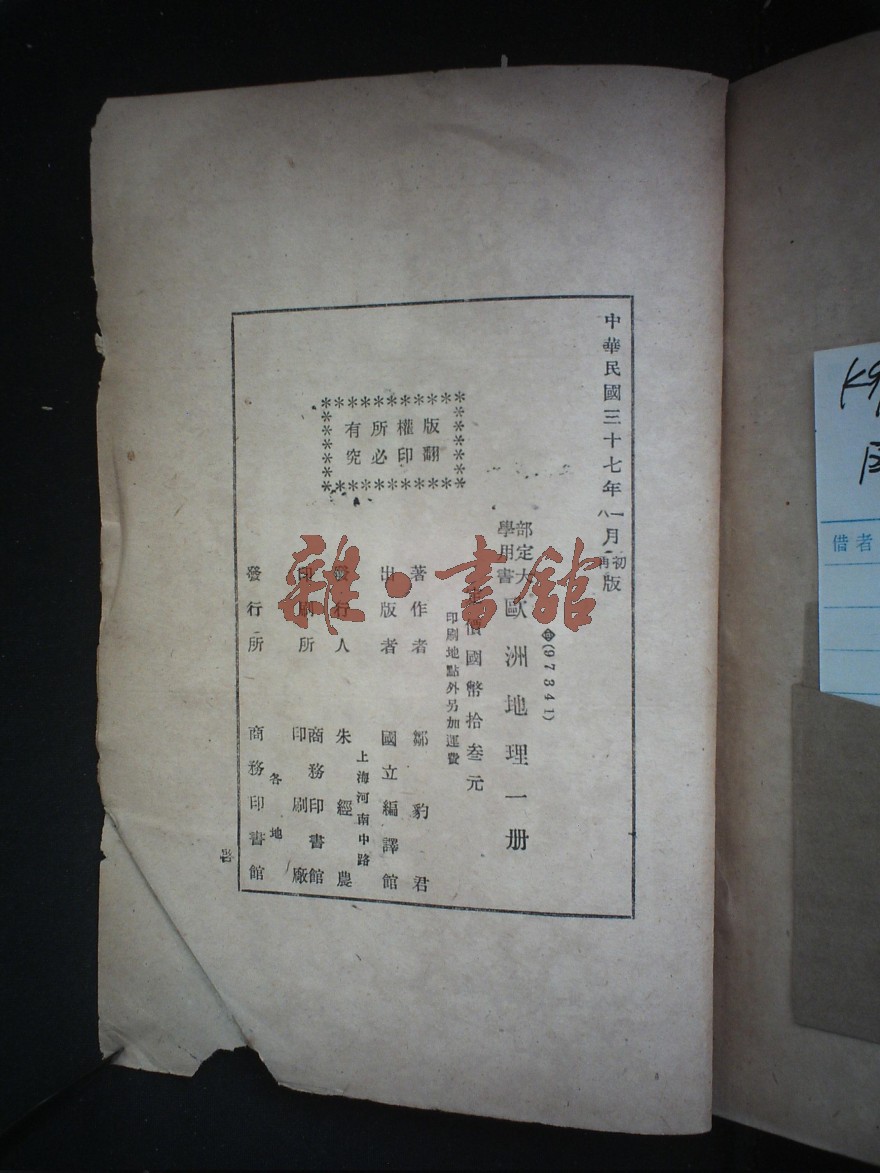 中華民國三十七年一月初版
八月再版
(97341)
部定大學用書
歐洲地理一册
定價國幣拾叁元
印刷地點外另加運費
版權所有
翻印必究
著作者 鄒豹君
出版者 國立編譯館
上海河南中路
發行人 朱經農
印刷所 商務印書館印刷廠
各地
發行所 商務印書館
雜·書館
借者